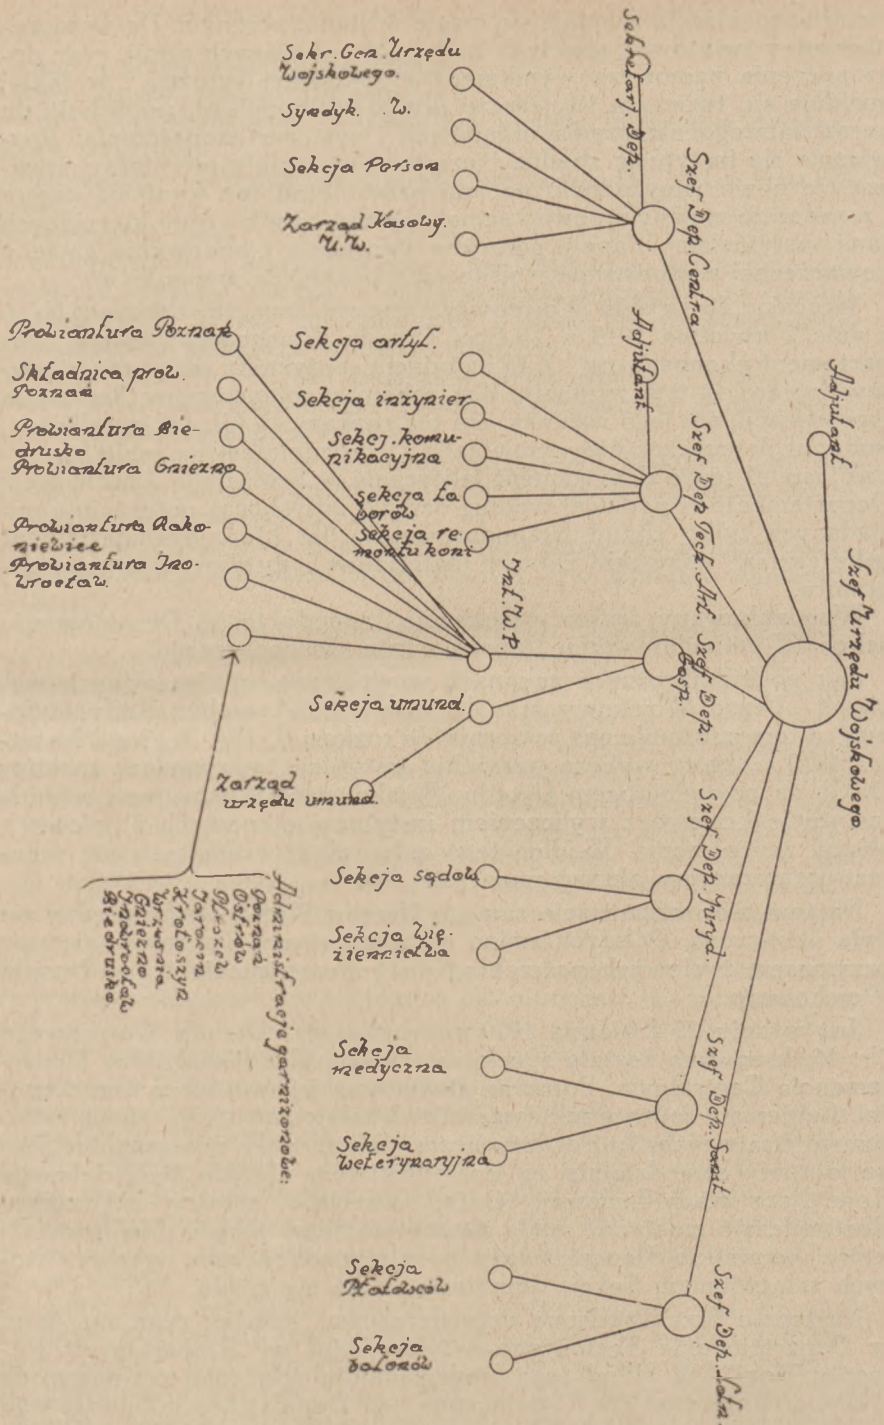 Szef Urzędu Wojskowego.
Adjutant
Szef Dep. Centra
Sekretarj. Dep.
Sekr. Gen. Urzędu
Wojskowego.
Syndyk. W.
Sekcja Person
Zarząd Kasowy.
U.W.
Szef Dep. Tech. Art.
Adjutant
Sekcja artyl.
Sekcja inżynier
Sekcj. komu-
nikacyjna
sekcja ta
borów
sekcja re
montu koni
Szef Dep.
Gosp.
Int. W.P.
Prowiantura Poznań
Składnica prow.
Poznań
Prowiantura Bie-
drusko
Prowiantura Gniezno
Prowiantura Rako-
niewice
Prowiantura Ino-
wrocław.
Sekcja umund.
Zarząd
urzędu umund.
Administracje garnizonowe:
Poznań
Ostrów
Pleszew
Jarocin
Krotoszyn
Września
Gniezno
Inowrocław
Biedrusko.
Szef Dep. Juryd.
Sekcja sądow
Sekcja wię-
ziennictwa
Szef Dep. Sanit.
Sekcja
medyczna
Sekcja
weterynaryjna
Szef Dep. Lotn.
Sekcja
Płatowców
Sekcja
balonów